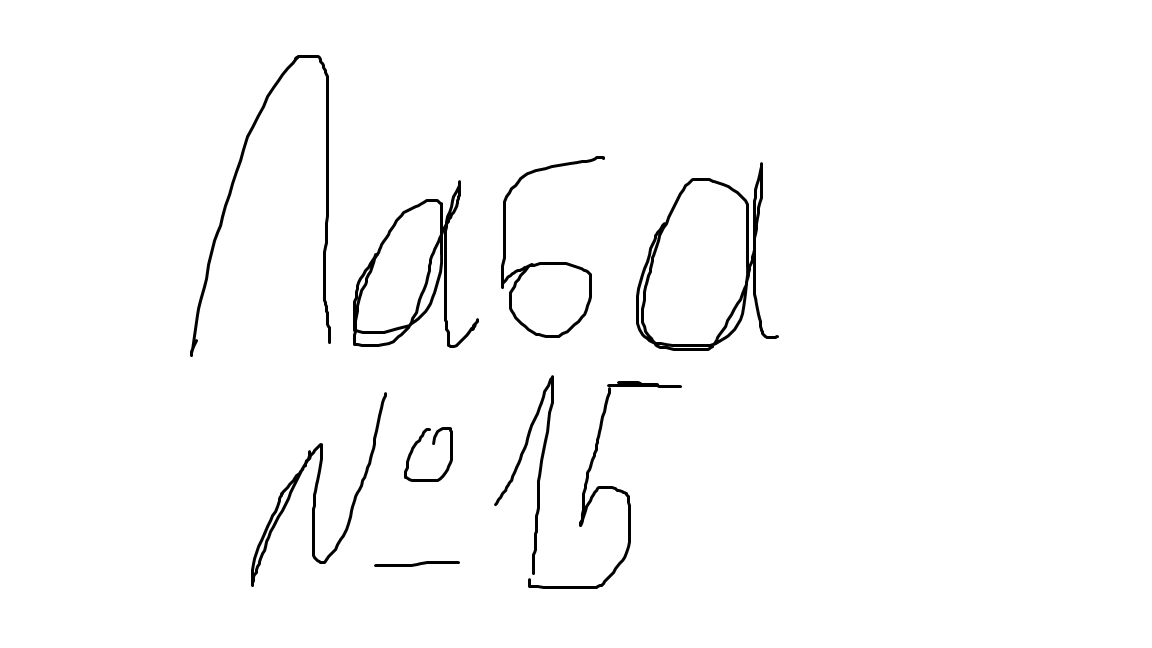 Лаба
№ 15